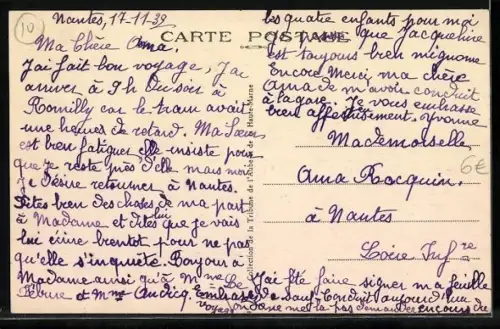 10
Nantes, 17-11-39
CARTE POSTALE
Ma Chère Ama.
J'ai fait bon voyage, J'ai
arriver à 9h Du soir à
Romilly car le train avait
une heures de retard. Ma Sœur
est bien fatiguer elle insiste pour
que je reste près d'elle mais moi
Je désire retourner à Nantes.
Dites bien des choses de ma part
à Madame et dites lui que je vais
lui écrire bientot pour ne pas
qu'elle s'inquiète. Bonjour à
Madame ainsi qu'à Mme Le
et Mme Embrasse
les quatre enfants pour moi
que Jacqueline
est toujours bien mignonne
Encore Merci, ma chère
Ama de m'avoir conduit
à la gare. Je vous embrasse
bien affectueusement. Yvonne
Mademoiselle
Ama Rocquin.
à Nantes
Loire Infre
6€
J'ai été faire signer ma feuille
de Sauf Conduit aujourd'hui
ne m'a pas demander encours de
voyage
Collection de la Tribune de l'Aube et de la Haute-Marne